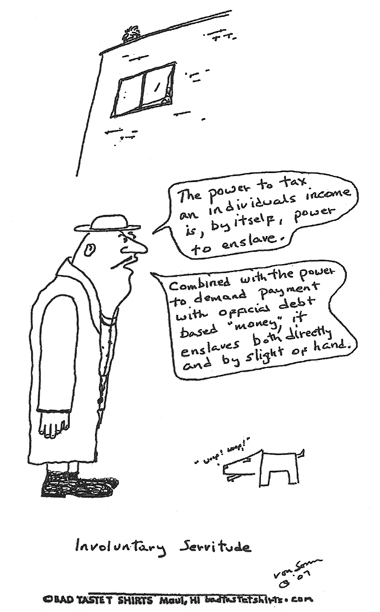 The power to tax
an individuals income
is, by itself, power
to enslave.
Combined with the power
to demand payment
with official debt
based "money", it
enslaves both directly
and by slight of hand.
"Woof! Woof!"
Involuntary Servitude
von Sonn
© '07
© BAD TASTET SHIRTS Maui, HI badtastetshirts.com